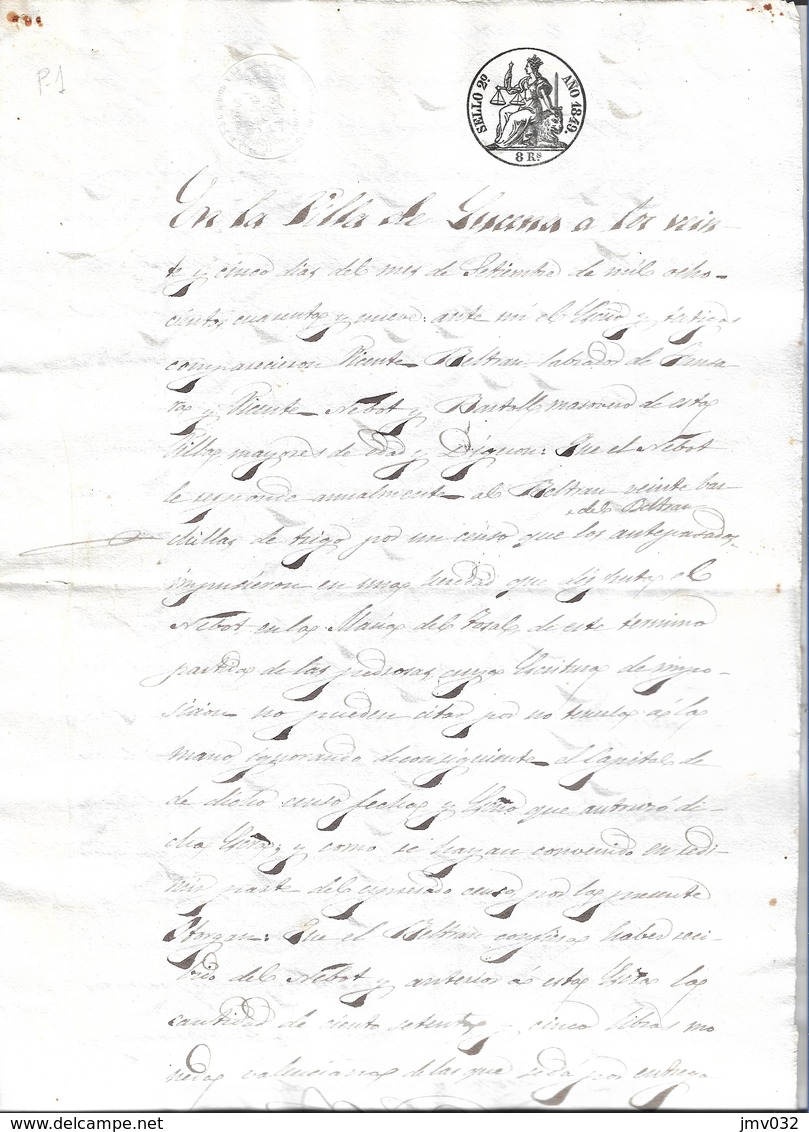 P.1
SELLO 2º AÑO 1849.
8 Rs
En la Villa de Lucena a los vein-
te y cinco dias del mes de Setiembre de mil ocho-
cientos cuarenta y nueve: ante mi el Esno y testigos
comparecieron Vicente Beltran labrador de Usera
y Vicente Nebot y Bartoll masovero de esta
Villa mayores de edad y Digeron: Que el Nebot
le responde anualmente al Beltran veinte bar-
del Beltran
chillas de trigo por un censo que los antepasados
impusieron en una heredad que disfruta el
Nebot en la Masia del Tosal de este termino
partida de las pedrosas cuya Escritura de impo-
sicion no pueden citar por no tenerla a la
mano ignorando de consiguiente el Capital de
de dicho censo fecha y Esno que autorizó di-
cha Esra; y como se hayan convenido en redi-
mir parte del espresado censo por la presente
Otorgan: Que el Beltran confiesa haber reci-
bido del Nebot y anterior a esta Esra la
cantidad de ciento setenta y cinco libras mo-
neda valenciana de las que se dá por entrega
jmv032